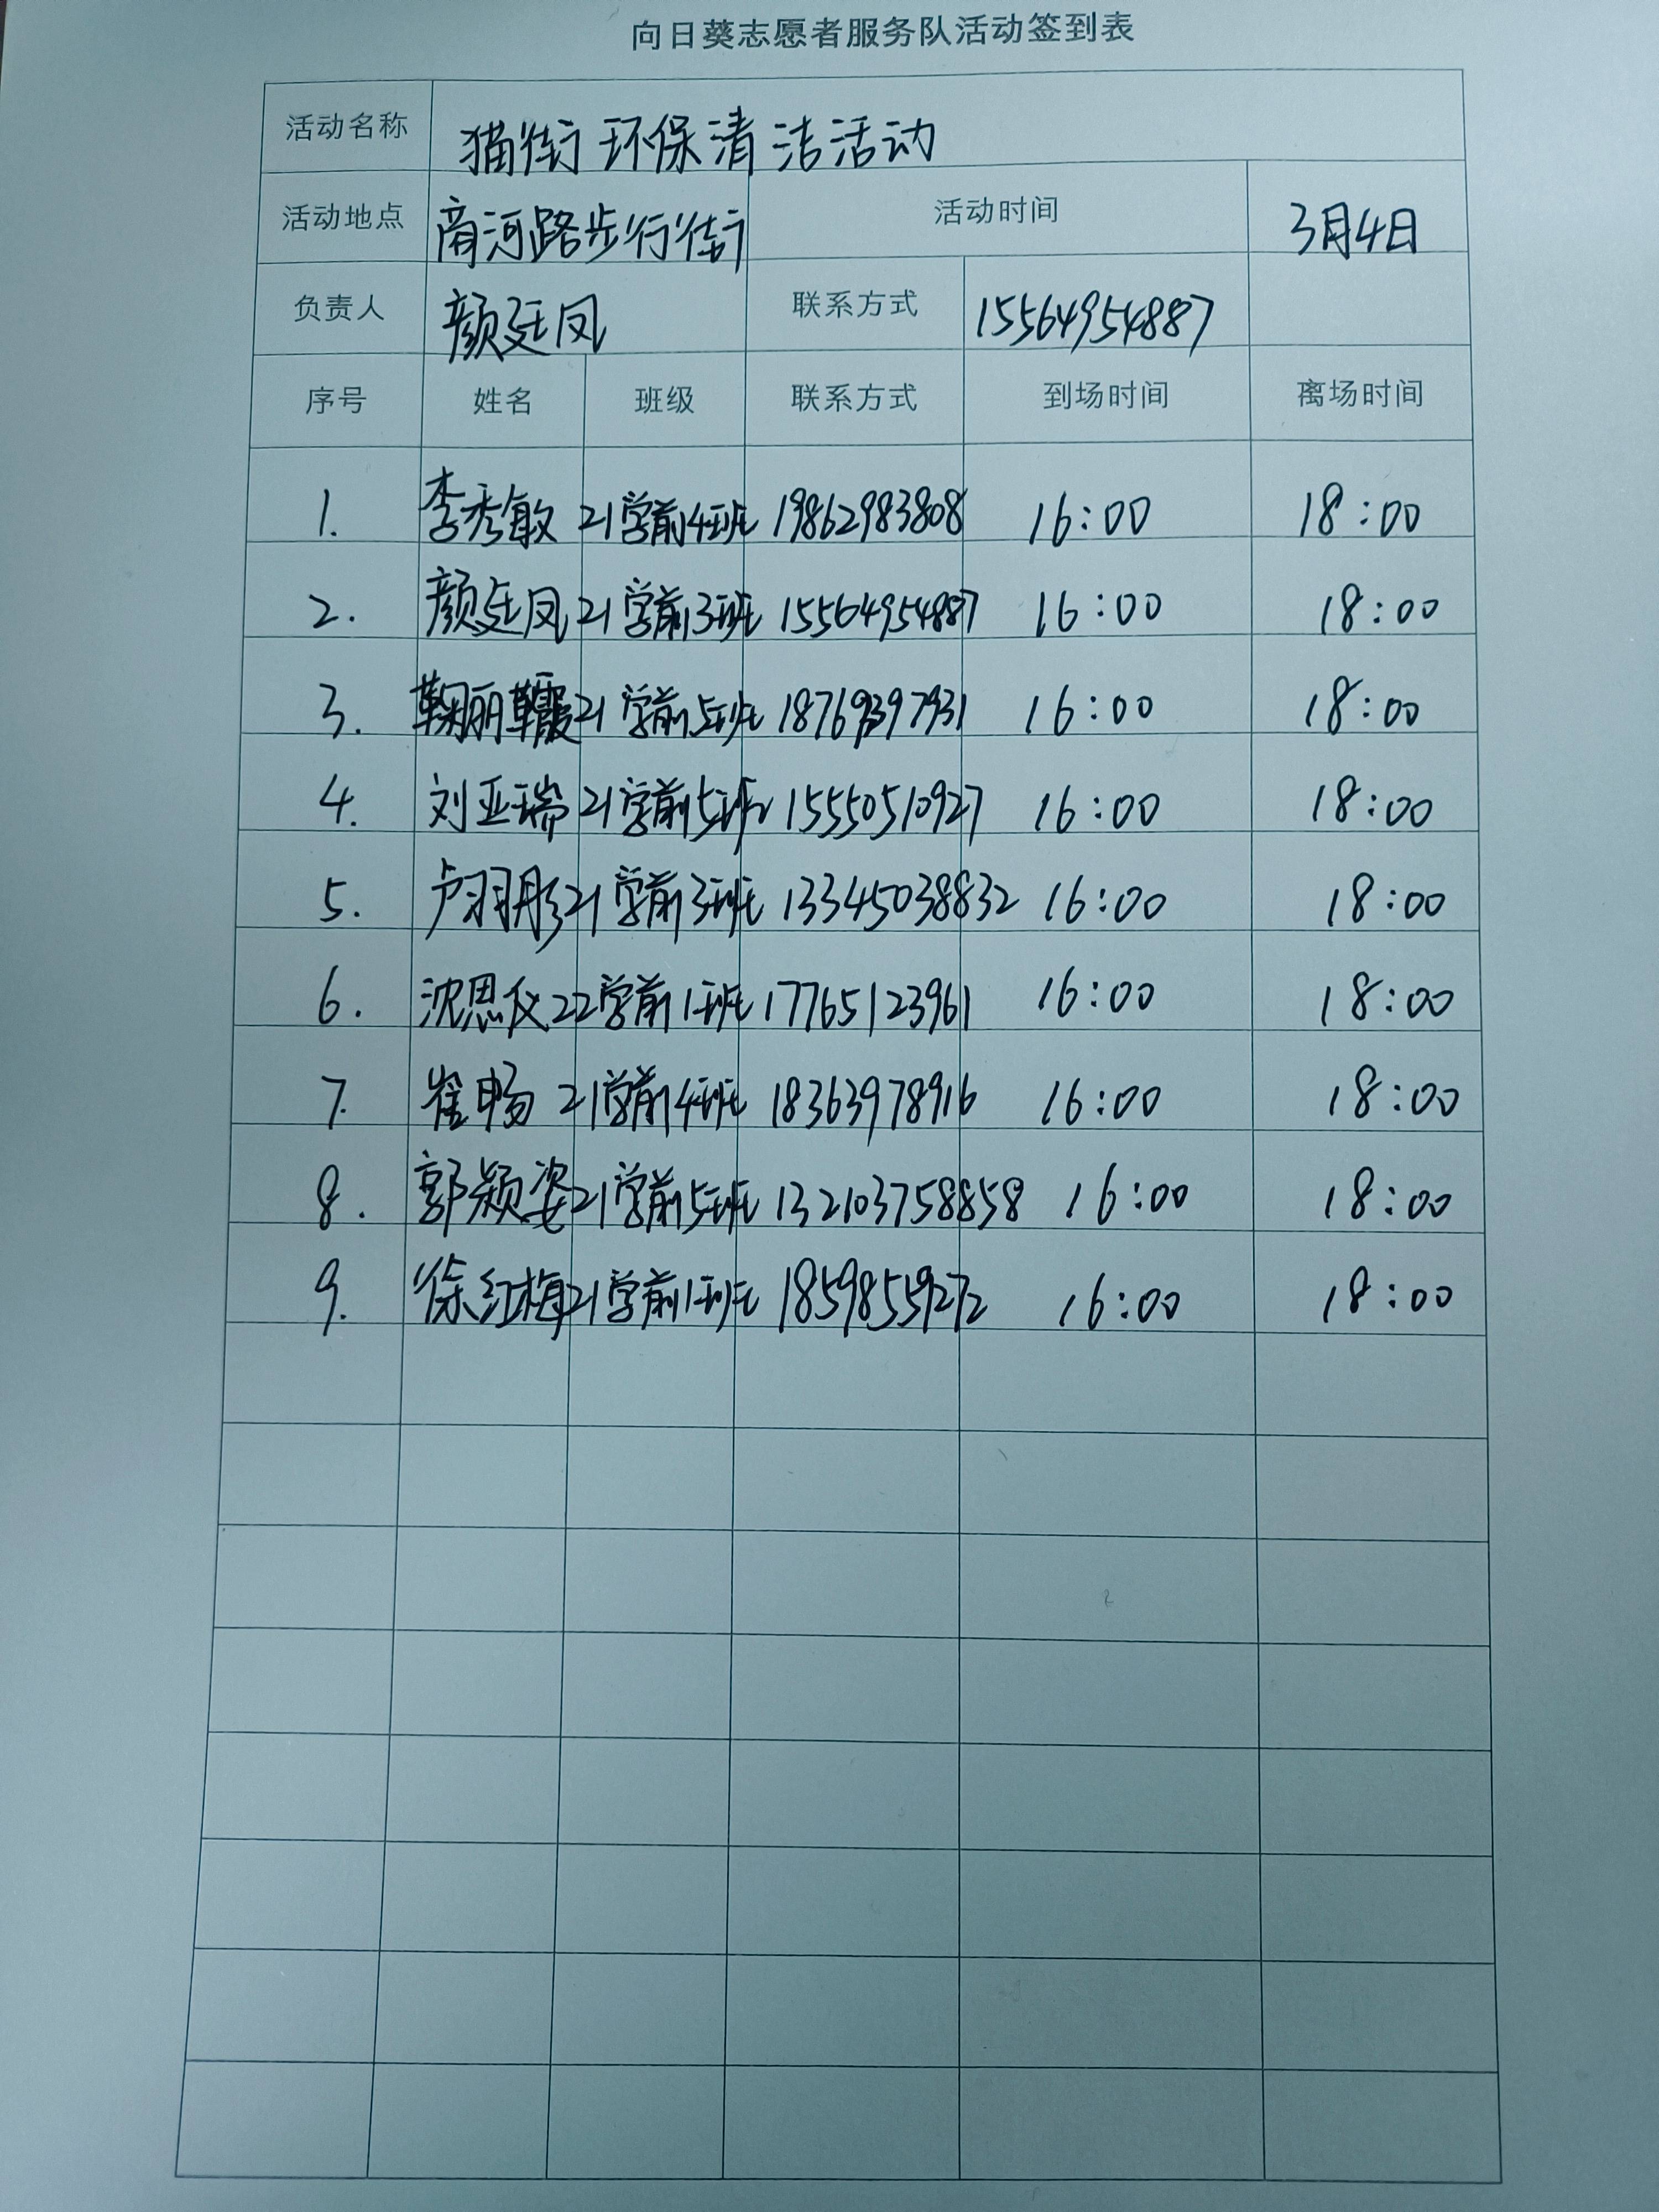 向日葵志愿者服务队活动签到表
活动名称 猫街环保清洁活动
活动地点 商河路步行街 活动时间 3月4日
负责人 颜廷凤 联系方式 15564954887
序号 姓名 班级 联系方式 到场时间 离场时间
1. 李秀敏 21学前4班 19862983808 16:00 18:00
2. 颜廷凤 21学前3班 15564954887 16:00 18:00
3. 鞠丽 21学前5班 16:00 18:00
4. 刘亚瑞 21学前5班 15550510927 16:00 18:00
5. 卢羽彤 21学前3班 13345038832 16:00 18:00
6. 沈思仪 22学前1班 17765123961 16:00 18:00
7. 崔畅 21学前4班 18363978916 16:00 18:00
8. 郭颍姿 21学前5班 132103758858 16:00 18:00
9. 徐红梅 21学前1班 18598559272 16:00 18:00